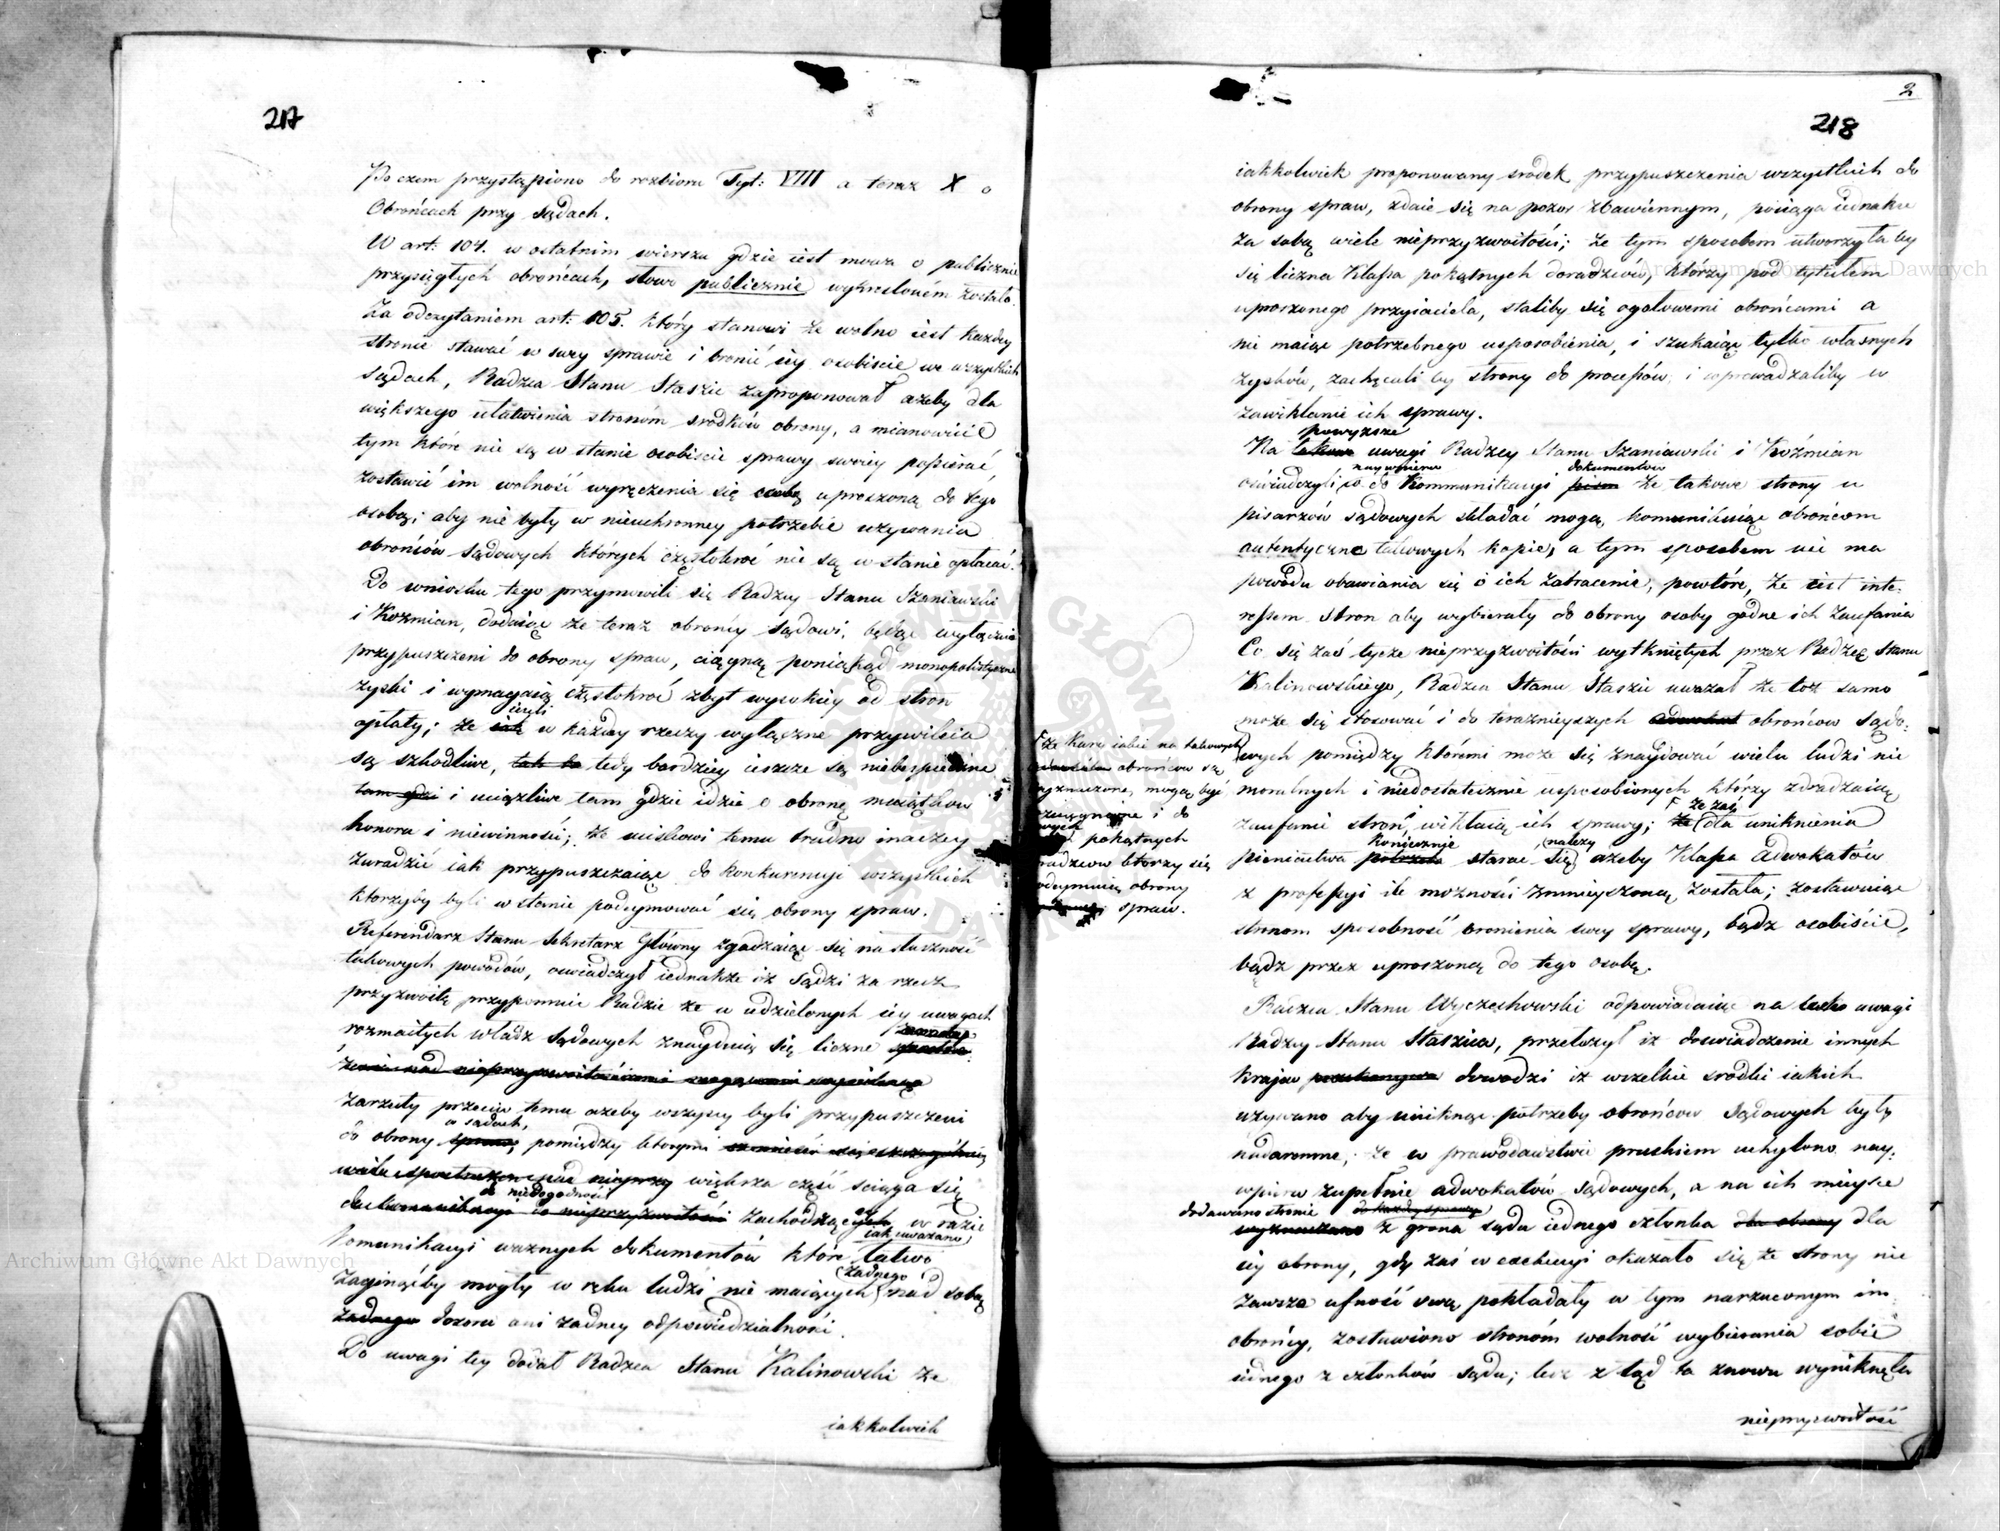 217
Po czem przystąpiono do rozbioru Tyt: VIII a teraz X o
Obrońcach przy sądach.
W art: 104. w ostatnim wierszu gdzie iest mowa o publicznie
przysięgłych obrońcach, słowo publicznie wykreslonem zostało.
Za odczytaniem art: 105. który stanowi że wolno iest każdey
stronie stawać w swey sprawie i bronić iey osobiscie we wszystkich
sądach, Radzca Stanu Staszic zaproponował ażeby dla
większego ułatwienia stronom srodków obrony, a mianowicie
tym które nie są w stanie osobiscie sprawy swoiey popierać,
zostawić im wolność wyręczenia się osobą uproszoną do tego
osobą; aby nie były w nieuchronney potrzebie używania
obrońców sądowych których częstokroć nie są w stanie opłacać.
Do wniosku tego przymowili się Radzcy Stanu Szaniawski
i Koźmian, dodaiąc że teraz obrońcy sądowi, będąc wyłącznie
przypuszczeni do obrony spraw, ciągną poniąkąd monopolistyczne
zyski i wymagaią częstokroć zbyt wysokiey od stron
ieżeli
opłaty; że iak w każdey rzeczy wyłączne przywileia
są szkodliwe, tak to tedy bardziey ieszcze są niebespieczne
tam gdzie i uciążliwe tam gdzie idzie o obronę maiątków
honoru i niewinności; że uciskowi temu trudno inaczey
zaradzić iak przypuszczaiąc do konkurencyi wszystkich
ktorzyby byli w stanie podeymować się obrony spraw.
Referendarz Stanu Sekretarz Główny zgadzaiąc się na słuszność
takowych powodów, oswiadczył iednakże iż sądzi za rzecz
przyzwoitą przypomnieć Radzie że w udzielonych iey uwagach
rozmaitych władz sądowych znayduią się liczne
zarzuty przeciw temu ażeby wszyscy byli przypuszczeni
w sądach,
do obrony sprawy pomiędzy ktoremi
większa część sciąga się
do niedogodności
zachodzących, w razie
iak uważano
komunikacyi ważnych dokumentów które łatwo
żadnego
zaginąćby mogły w ręku ludzi nie maiących nad sobą
żadnego dozoru ani żadney odpowiedzialności.
Do uwagi tey dodał Radzca Stanu Kalinowski że
iakkolwiek
2
218
iakkolwiek proponowany srodek przypuszczenia wszystkich do
obrony spraw, zdaie się na pozor zbawiennym, pociąga iednakże
za sobą wiele nieprzyzwoitości; że tym sposobem utworzyłaby
się liczna klassa pokątnych doradzców, którzy pod tytułem
uproszonego przyiaciela, staliby się ogołowemi obrońcami a
nie maiąc potrzebnego usposobienia, i szukaiąc tylko własnych
zysków, zachęcali by strony do processów i wprowadzaliby w
zawikłanie ich sprawy.
powyższe
Na takowe uwagi Radzcy Stanu Szaniawski i Koźmian
naypierw dokumentow
oświadczyli, co do kommunikacyi pism że takowe strony u
pisarzów sądowych składać mogą, komunikuiąc obrońcom
autentyczne takowych kopie, a tym sposobem nie ma
powodu obawiania się o ich zatracenie, powtóre, że iest inte-
ressem stron aby wybierały do obrony osoby godne ich zaufania
Co się zaś tycze nieprzyzwoitości wytkniętych przez Radzcę Stanu
Kalinowskiego, Radzca Stanu Staszic uważał że toż samo
może się stosować i do teraznieyszych adwokat obrońcow sądo-
wych pomiędzy któremi może się znaydować wielu ludzi nie
moralnych i niedostatecznie usposobionych którzy zdradzaiąc
że zaś
zaufanie stron, wikłaią ich sprawy; że dla uniknienia
Koniecznie należy
pieniactwa potrzeba starać się ażeby klassa Adwokatów
z professyi ile możności zmnieyszoną została; zostawuiąc
stronom sposobność bronienia swey sprawy, bądz osobiście,
bądz przez uproszoną do tego osobę.
że kary iakie na takowych
obrońców są
wyznaczone, mogą być
rozciągnione i do
pokątnych
radzcow ktorzy się
podeymuią obrony
spraw.
Radzca Stanu Wyczechowski odpowiadaiąc na te uwagi
Radzcy Stanu Staszica, przełożył iż doswiadczenie innych
kraiow przekonywa dowodzi iż wszelkie srodki iakich
używano aby uniknąć potrzeby obrońcow sądowych były
nadaremne; że w prawodawstwie pruskiem uchylono nay-
wpierw zupełnie adwokatów sądowych, a na ich mieysce
dodawano stronie do każdey sprawy
wyznaczano z grona sądu iednego członka dla obrony dla
iey obrony, gdy zaś w exekucyi okazało się że strony nie
zawsze ufność swą pokładały w tym narzuconym im
obrońcy, zostawiono stronóm wolność wybierania sobie
iednego z członków sądu; lecz z tąd ta znowu wyniknęła
nieprzyzwoitość
Archiwum Główne Akt Dawnych